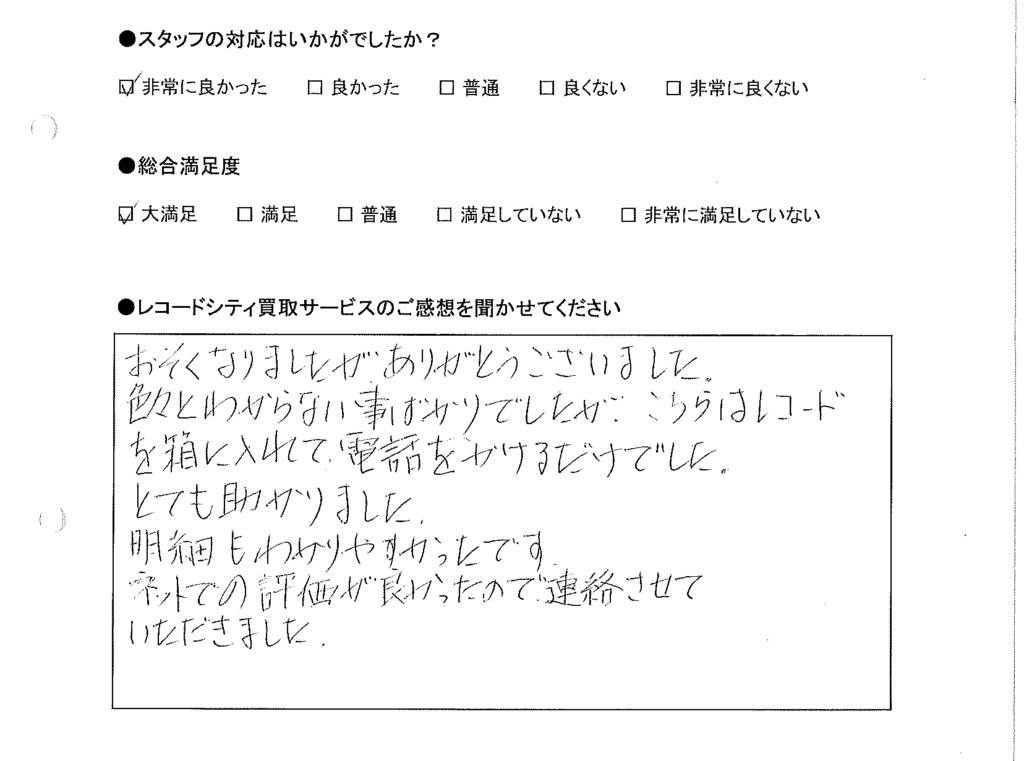 ●スタッフの対応はいかがでしたか？
☑非常に良かった　□ 良かった　□ 普通　□ 良くない　□ 非常に良くない
●総合満足度
☑大満足　□ 満足　□ 普通　□ 満足していない　□ 非常に満足していない
●レコードシティ買取サービスのご感想を聞かせてください
おそくなりましたが、ありがとうございました。
色々とわからない事ばかりでしたが、こちらはレコード
を箱に入れて、電話をかけるだけでした。
とても助かりました。
明細もわかりやすかったです。
ネットでの評価が良かったので、連絡させて
いただきました。